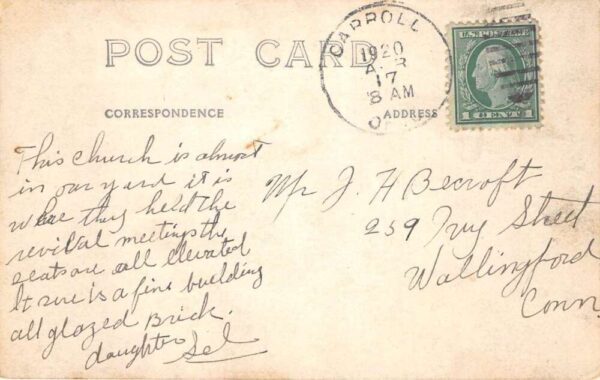 POST CARD
CARROLL
1920
APR
17
8 AM
U.S. POSTAGE
1 CENT 1
CORRESPONDENCE
ADDRESS
This church is almost
in our yard it is
where they held the
revital meetings the
seats are all elevated
It sure is a fine building
all glazed Brick.
daughter Sel
Mr J. H Becroft
259 Ivy Street
Wallingford
Conn.